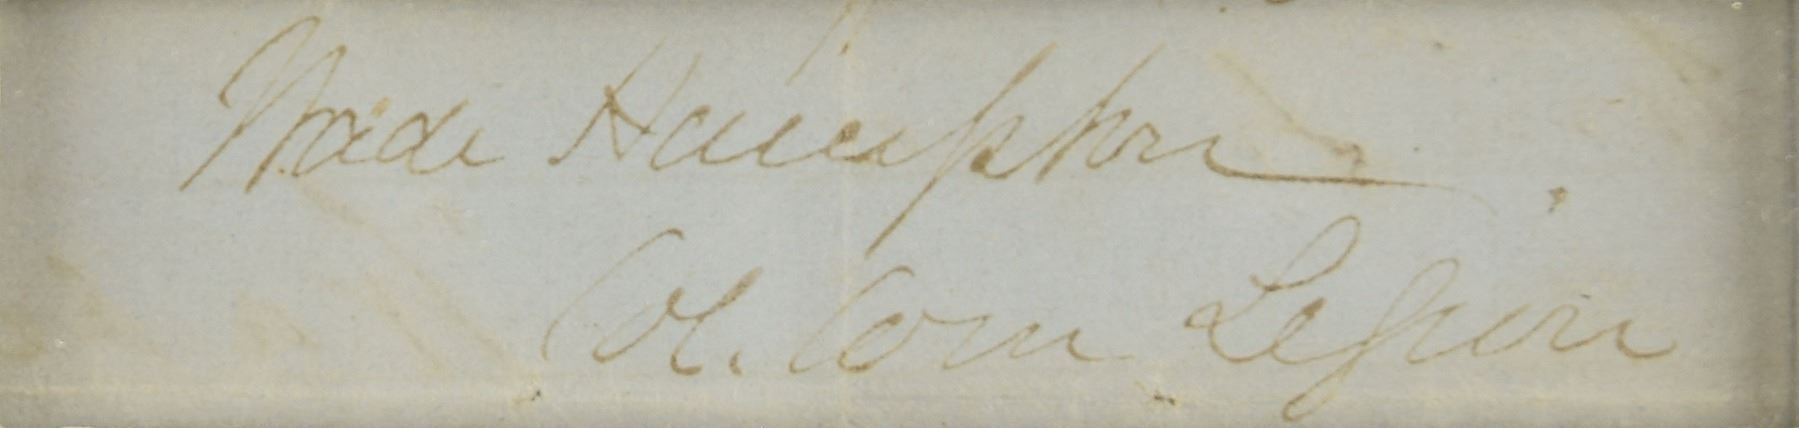 Wade Hampton
Col. Com Legion